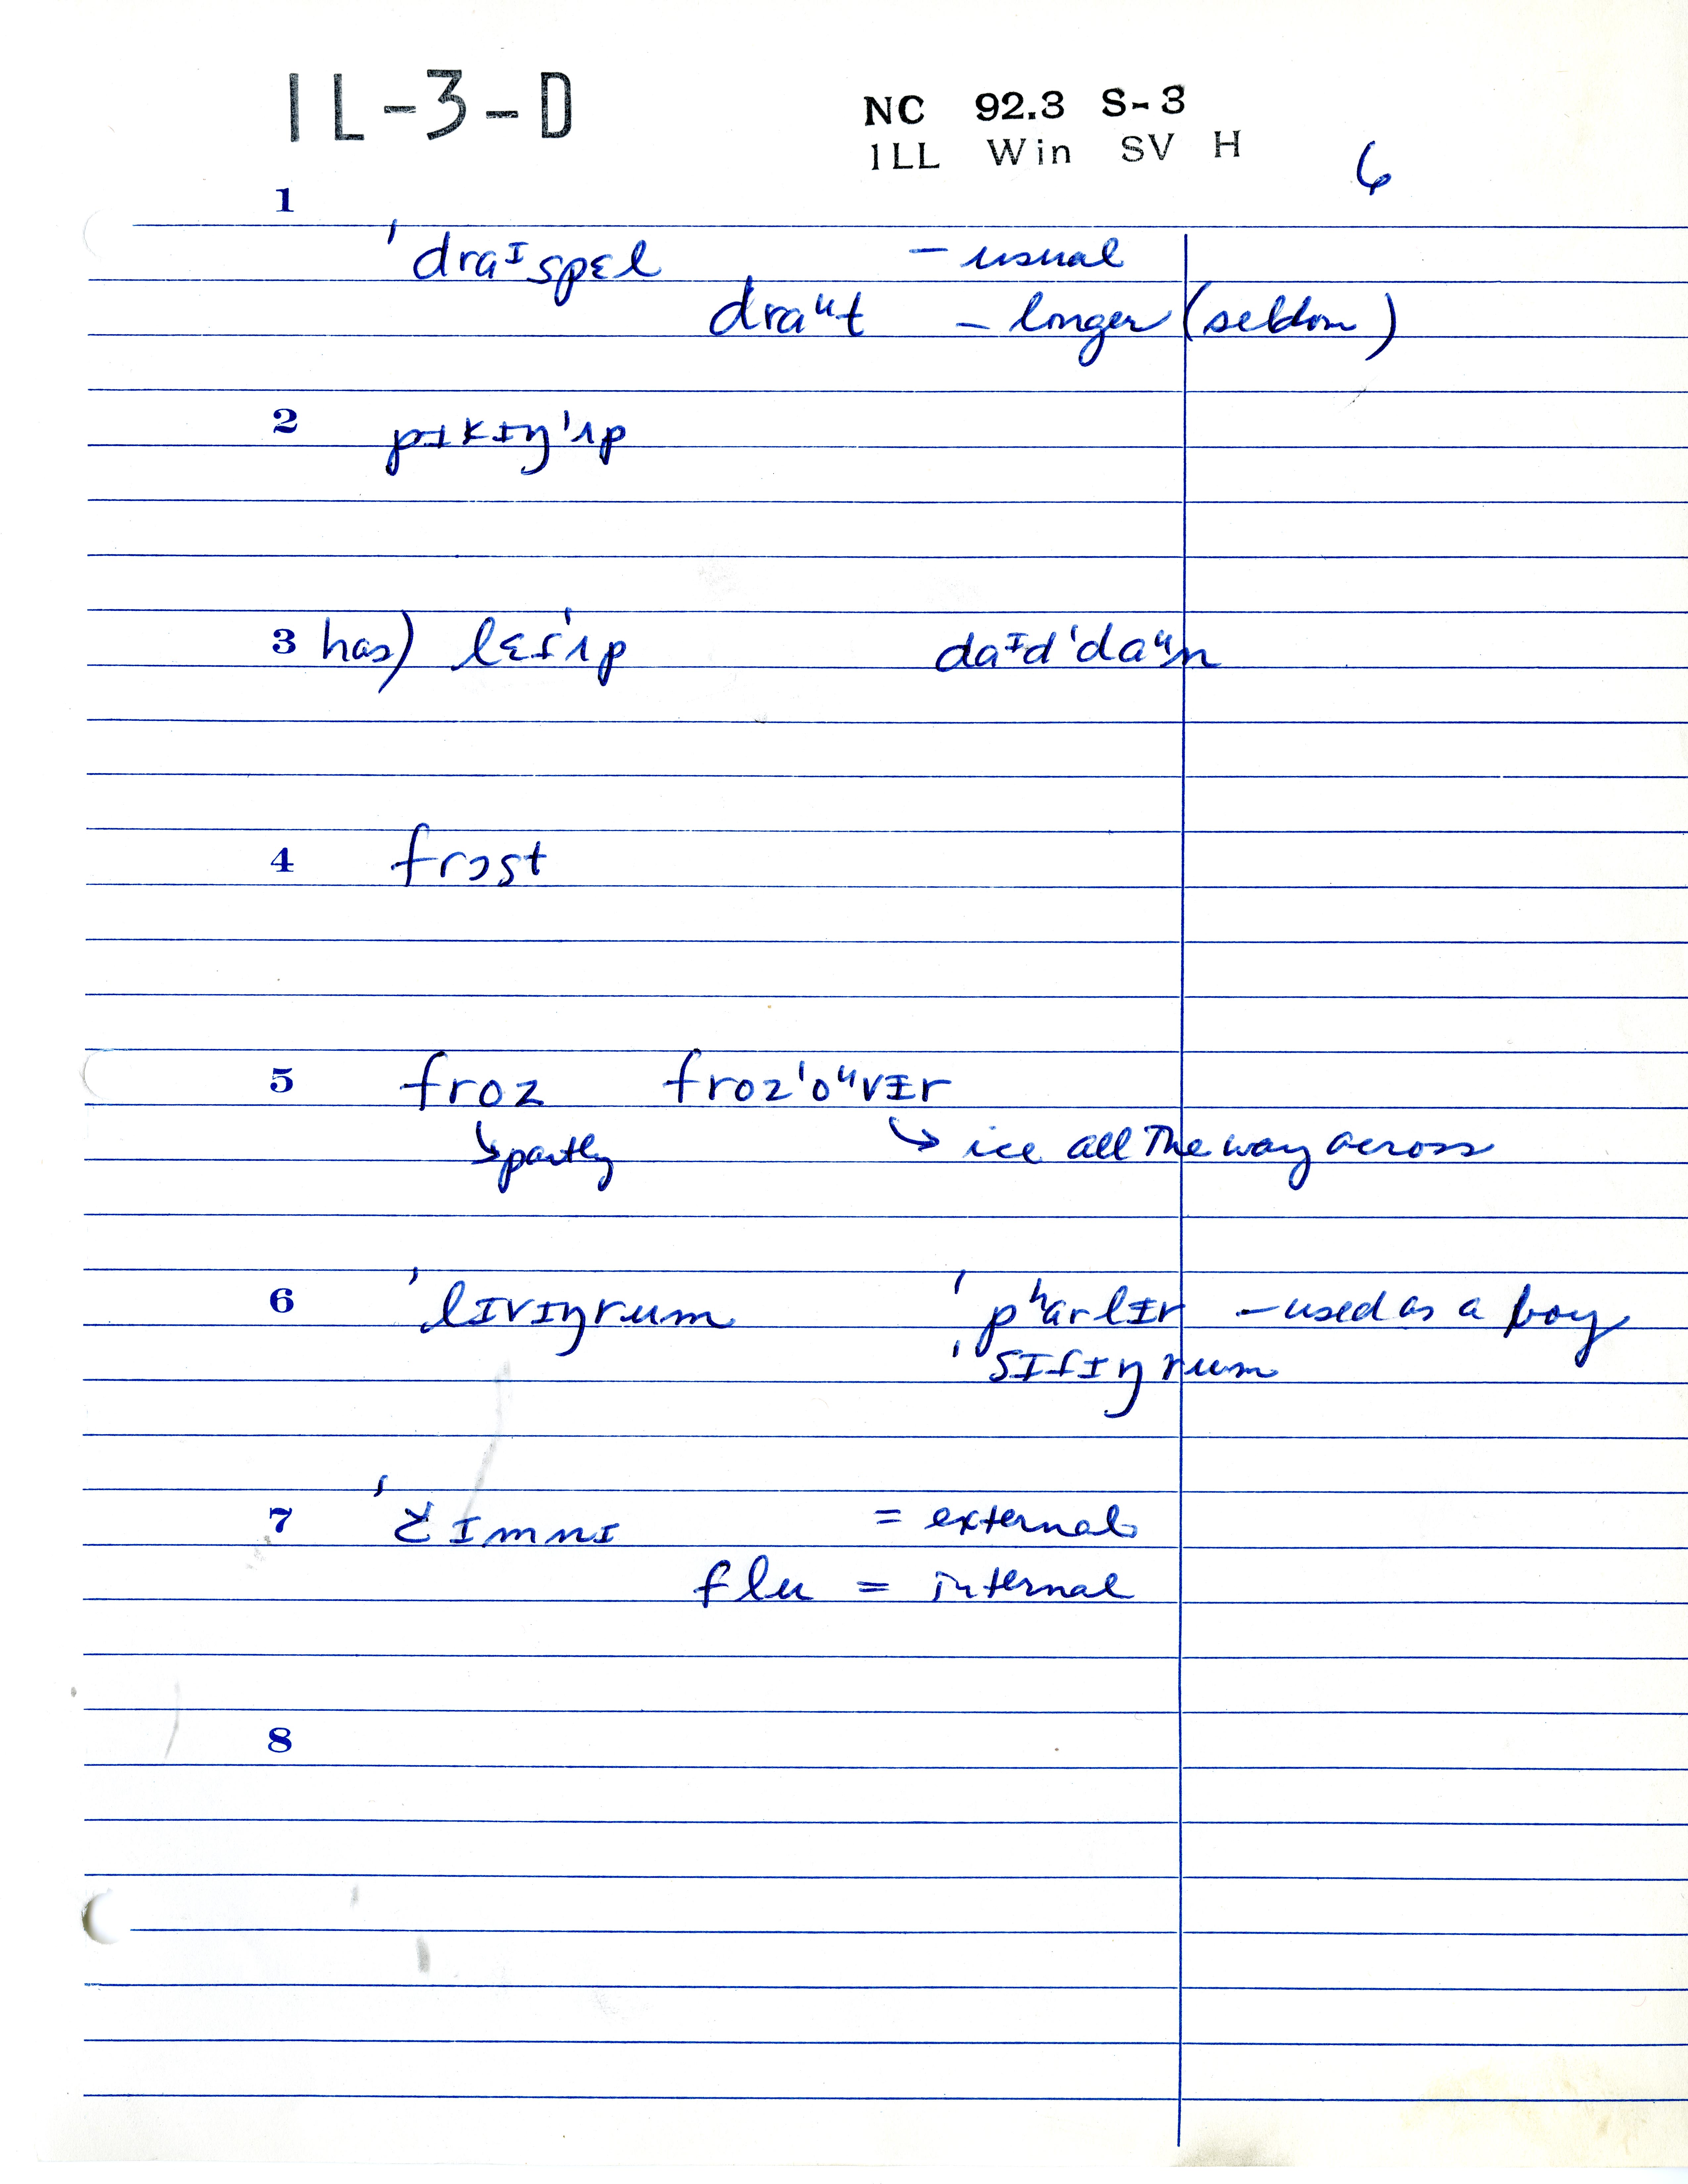 IL-3-D
NC 92.3 S-3
ILL Win SV H
6
1
ˈdraᴵspɛl - usual
draᵘt - longer (seldom)
2 pɪkɪŋˈʌp
3 has) lɛɾˈʌp daᴵdˈdaᵘn
4 frɔst
5 froz frozˈoᵘvɪr
↳ partly ↳ ice all the way across
6 ˈlɪvɪŋrum ˈpʰarlɪr - used as a boy
ˈsɪɾɪŋrum
7 ˈčɪmnɪ = external
flu = internal
8